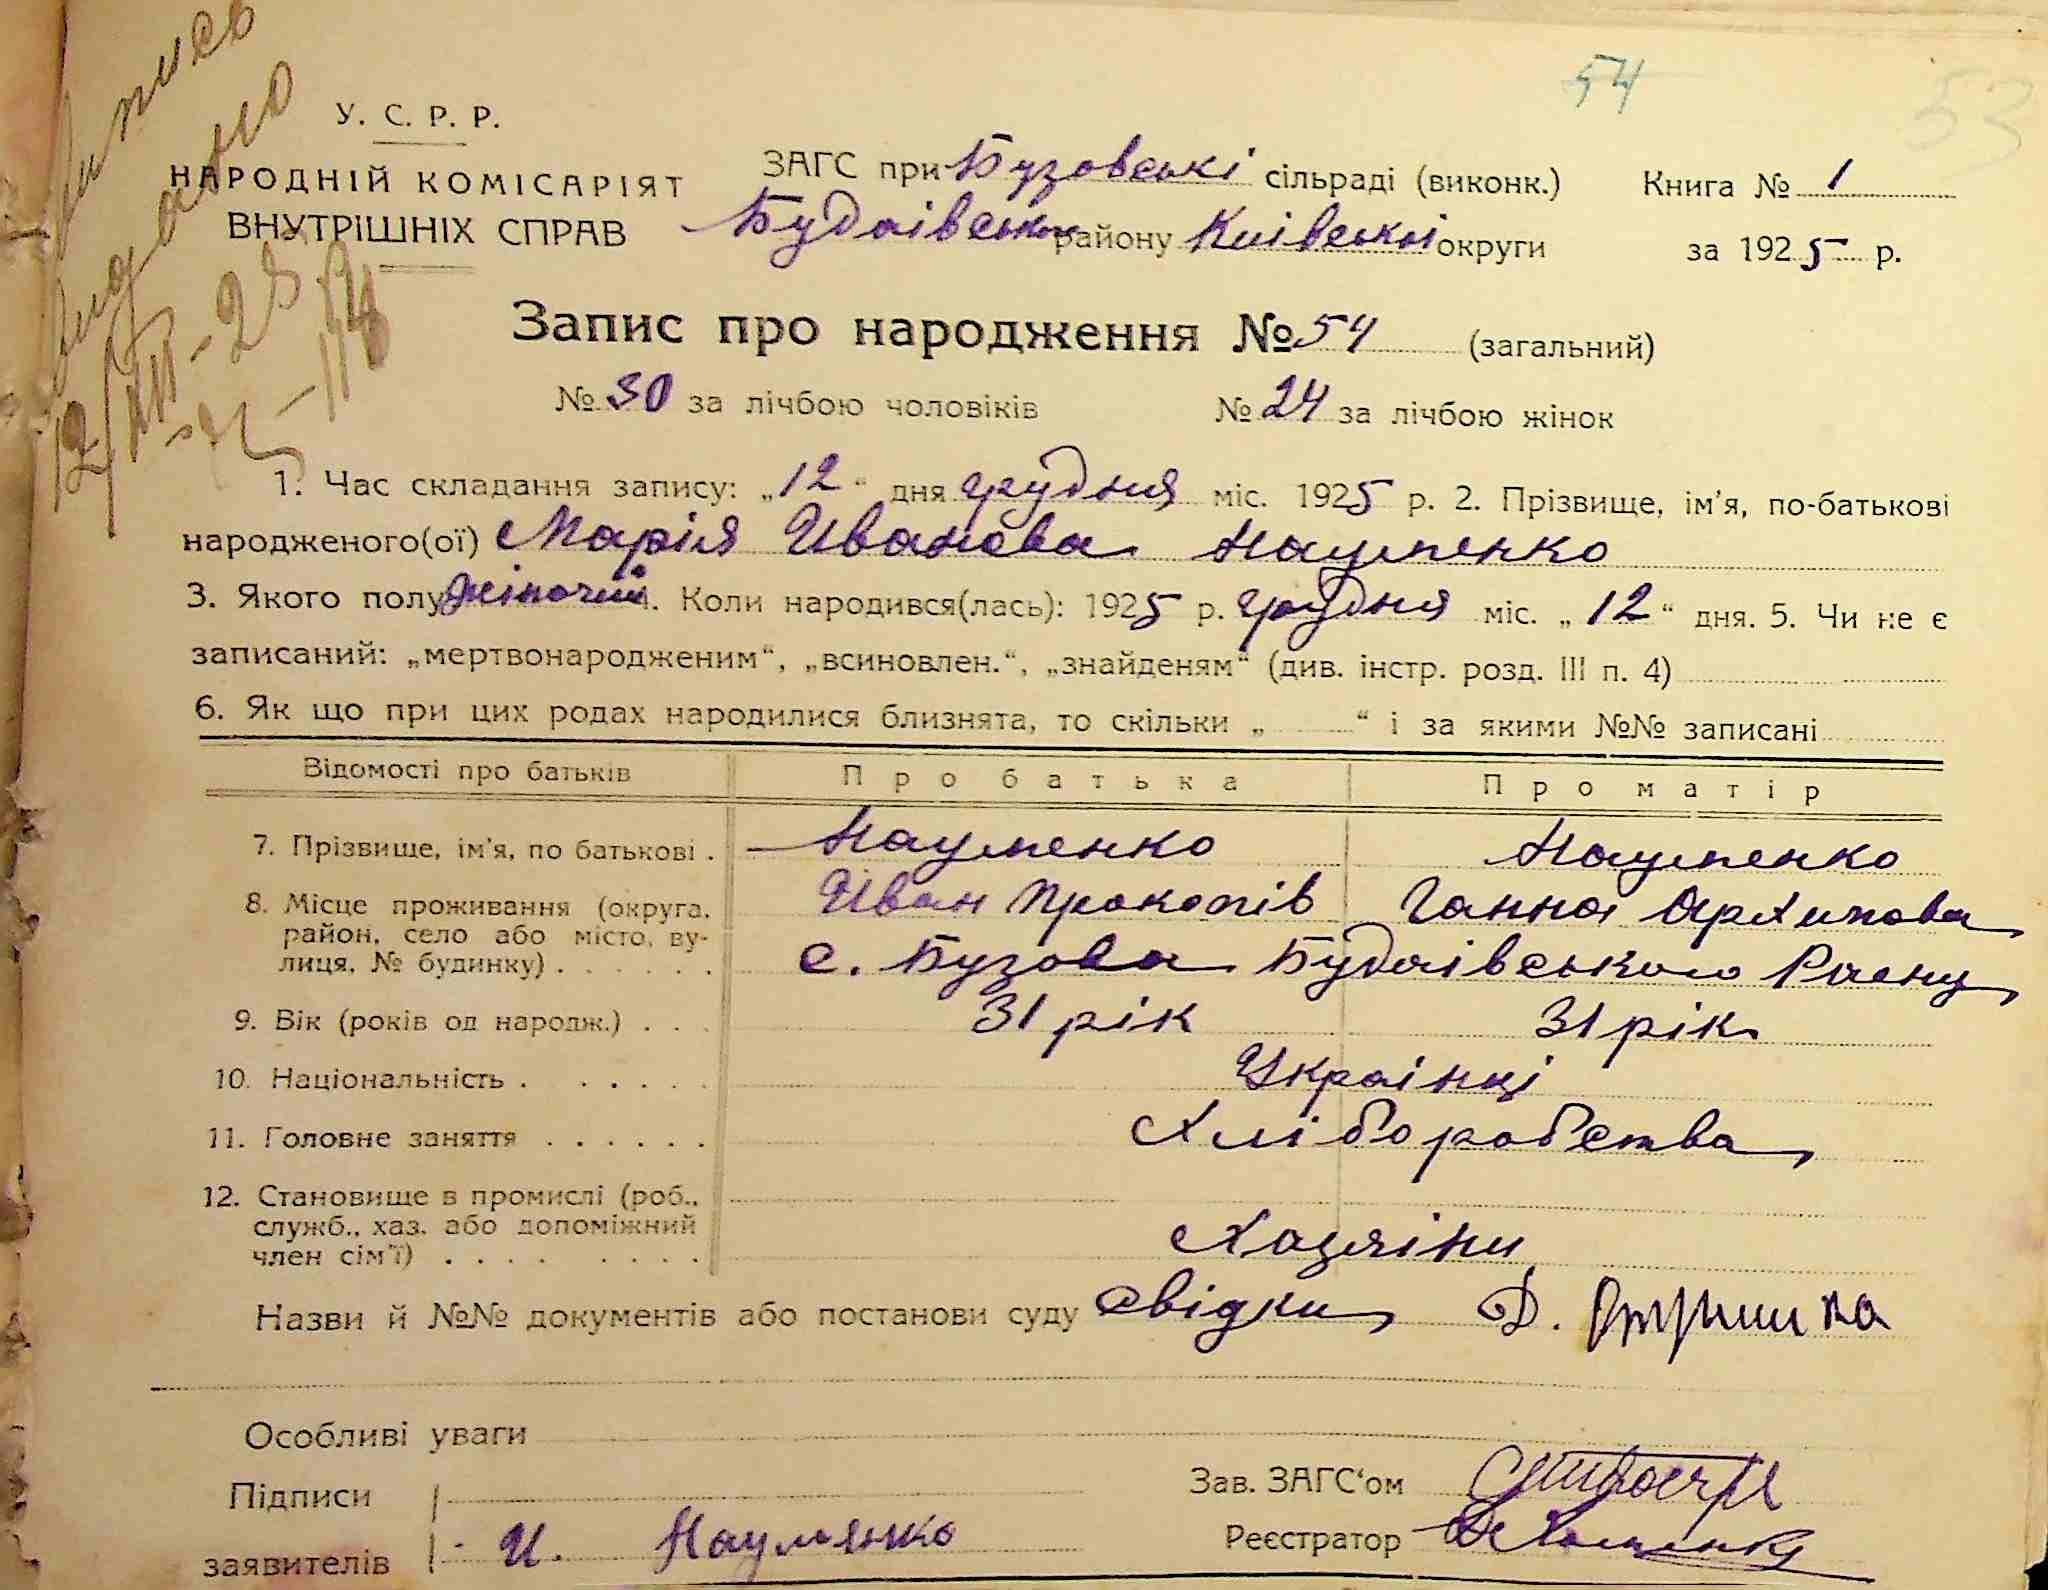 54
53
У. С. Р. Р.
НАРОДНІЙ КОМІСАРІЯТ
ВНУТРІШНІХ СПРАВ
ЗАГС при Бузовські сільраді (виконк.)
Будаівського району Киівськоі округи
Книга № 1
за 1925 р.
видано
12/XII-25
Запис про народження № 54 (загальний)
№ 30 за лічбою чоловіків № 24 за лічбою жінок
1. Час складання запису: „12“ дня грудня міс. 1925 р. 2. Прізвище, ім'я, по-батькові
народженого(ої) Марія Иванова Науменко
3. Якого полу жіночий. Коли народився(лась): 1925 р. грудня міс. „12“ дня. 5. Чи не є
записаний: „мертвонародженим“, „всиновлен.“, „знайденям“ (див. інстр. розд. III п. 4)
6. Як що при цих родах народилися близнята, то скільки „ “ і за якими №№ записані
Відомості про батьків Про батька Про матір
7. Прізвище, ім'я, по батькові . Науменко Науменко
Иван Прокопів Ганна Архипова
8. Місце проживання (округа,
район, село або місто, ву-
лиця, № будинку) . . . . . . с. Бузова Будаівського Раену
9. Вік (років од народж.) . . . 31 рік 31 рік
10. Національність . . . . . . Украінці
11. Головне заняття . . . . . . Хліборобства
12. Становище в промислі (роб.,
служб., хаз. або допоміжний
член сім'ї) . . . . . . . . Хазяіни
Назви й №№ документів або постанови суду свідки Д.
Особливі уваги
Підписи
заявителів И. Наумэнко
Зав. ЗАГС'ом
Реєстратор